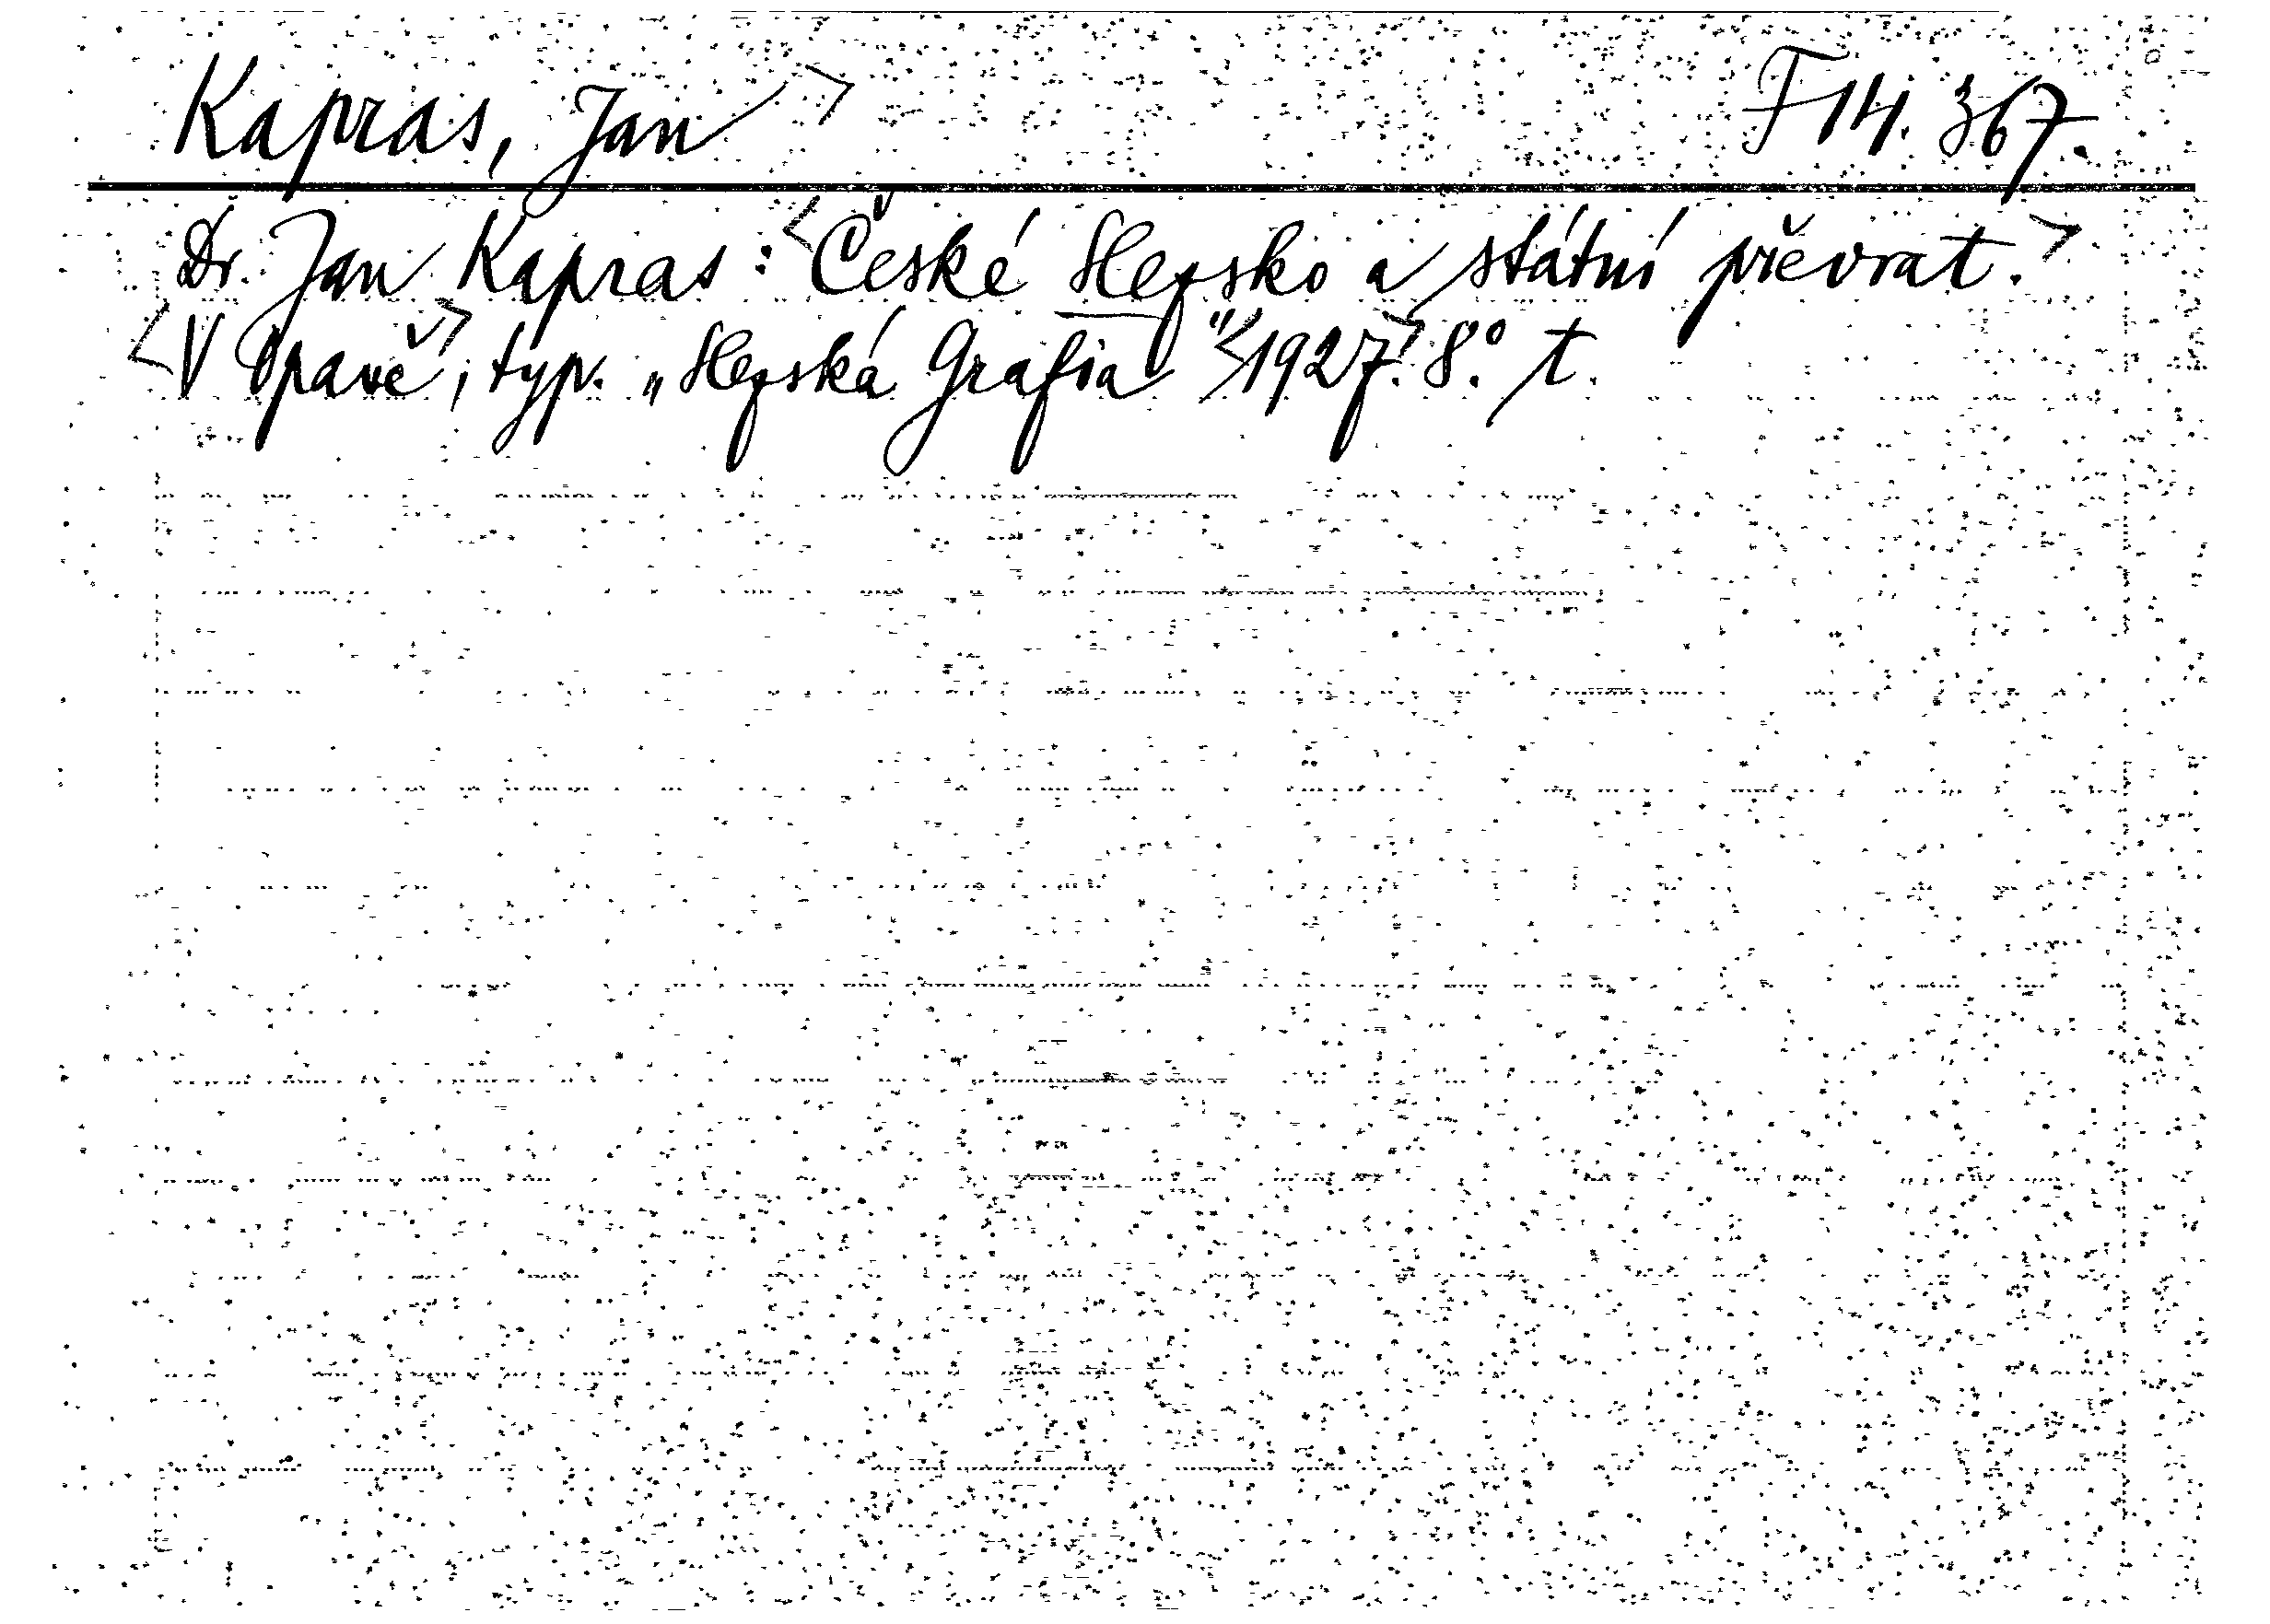 Kapras, Jan> F 14. 367.
Dr. Jan Kapras: <České Slezsko a státní převrat.>
<V Opavě>, typ. „Slezská Grafia" <1927>. 8.° t.